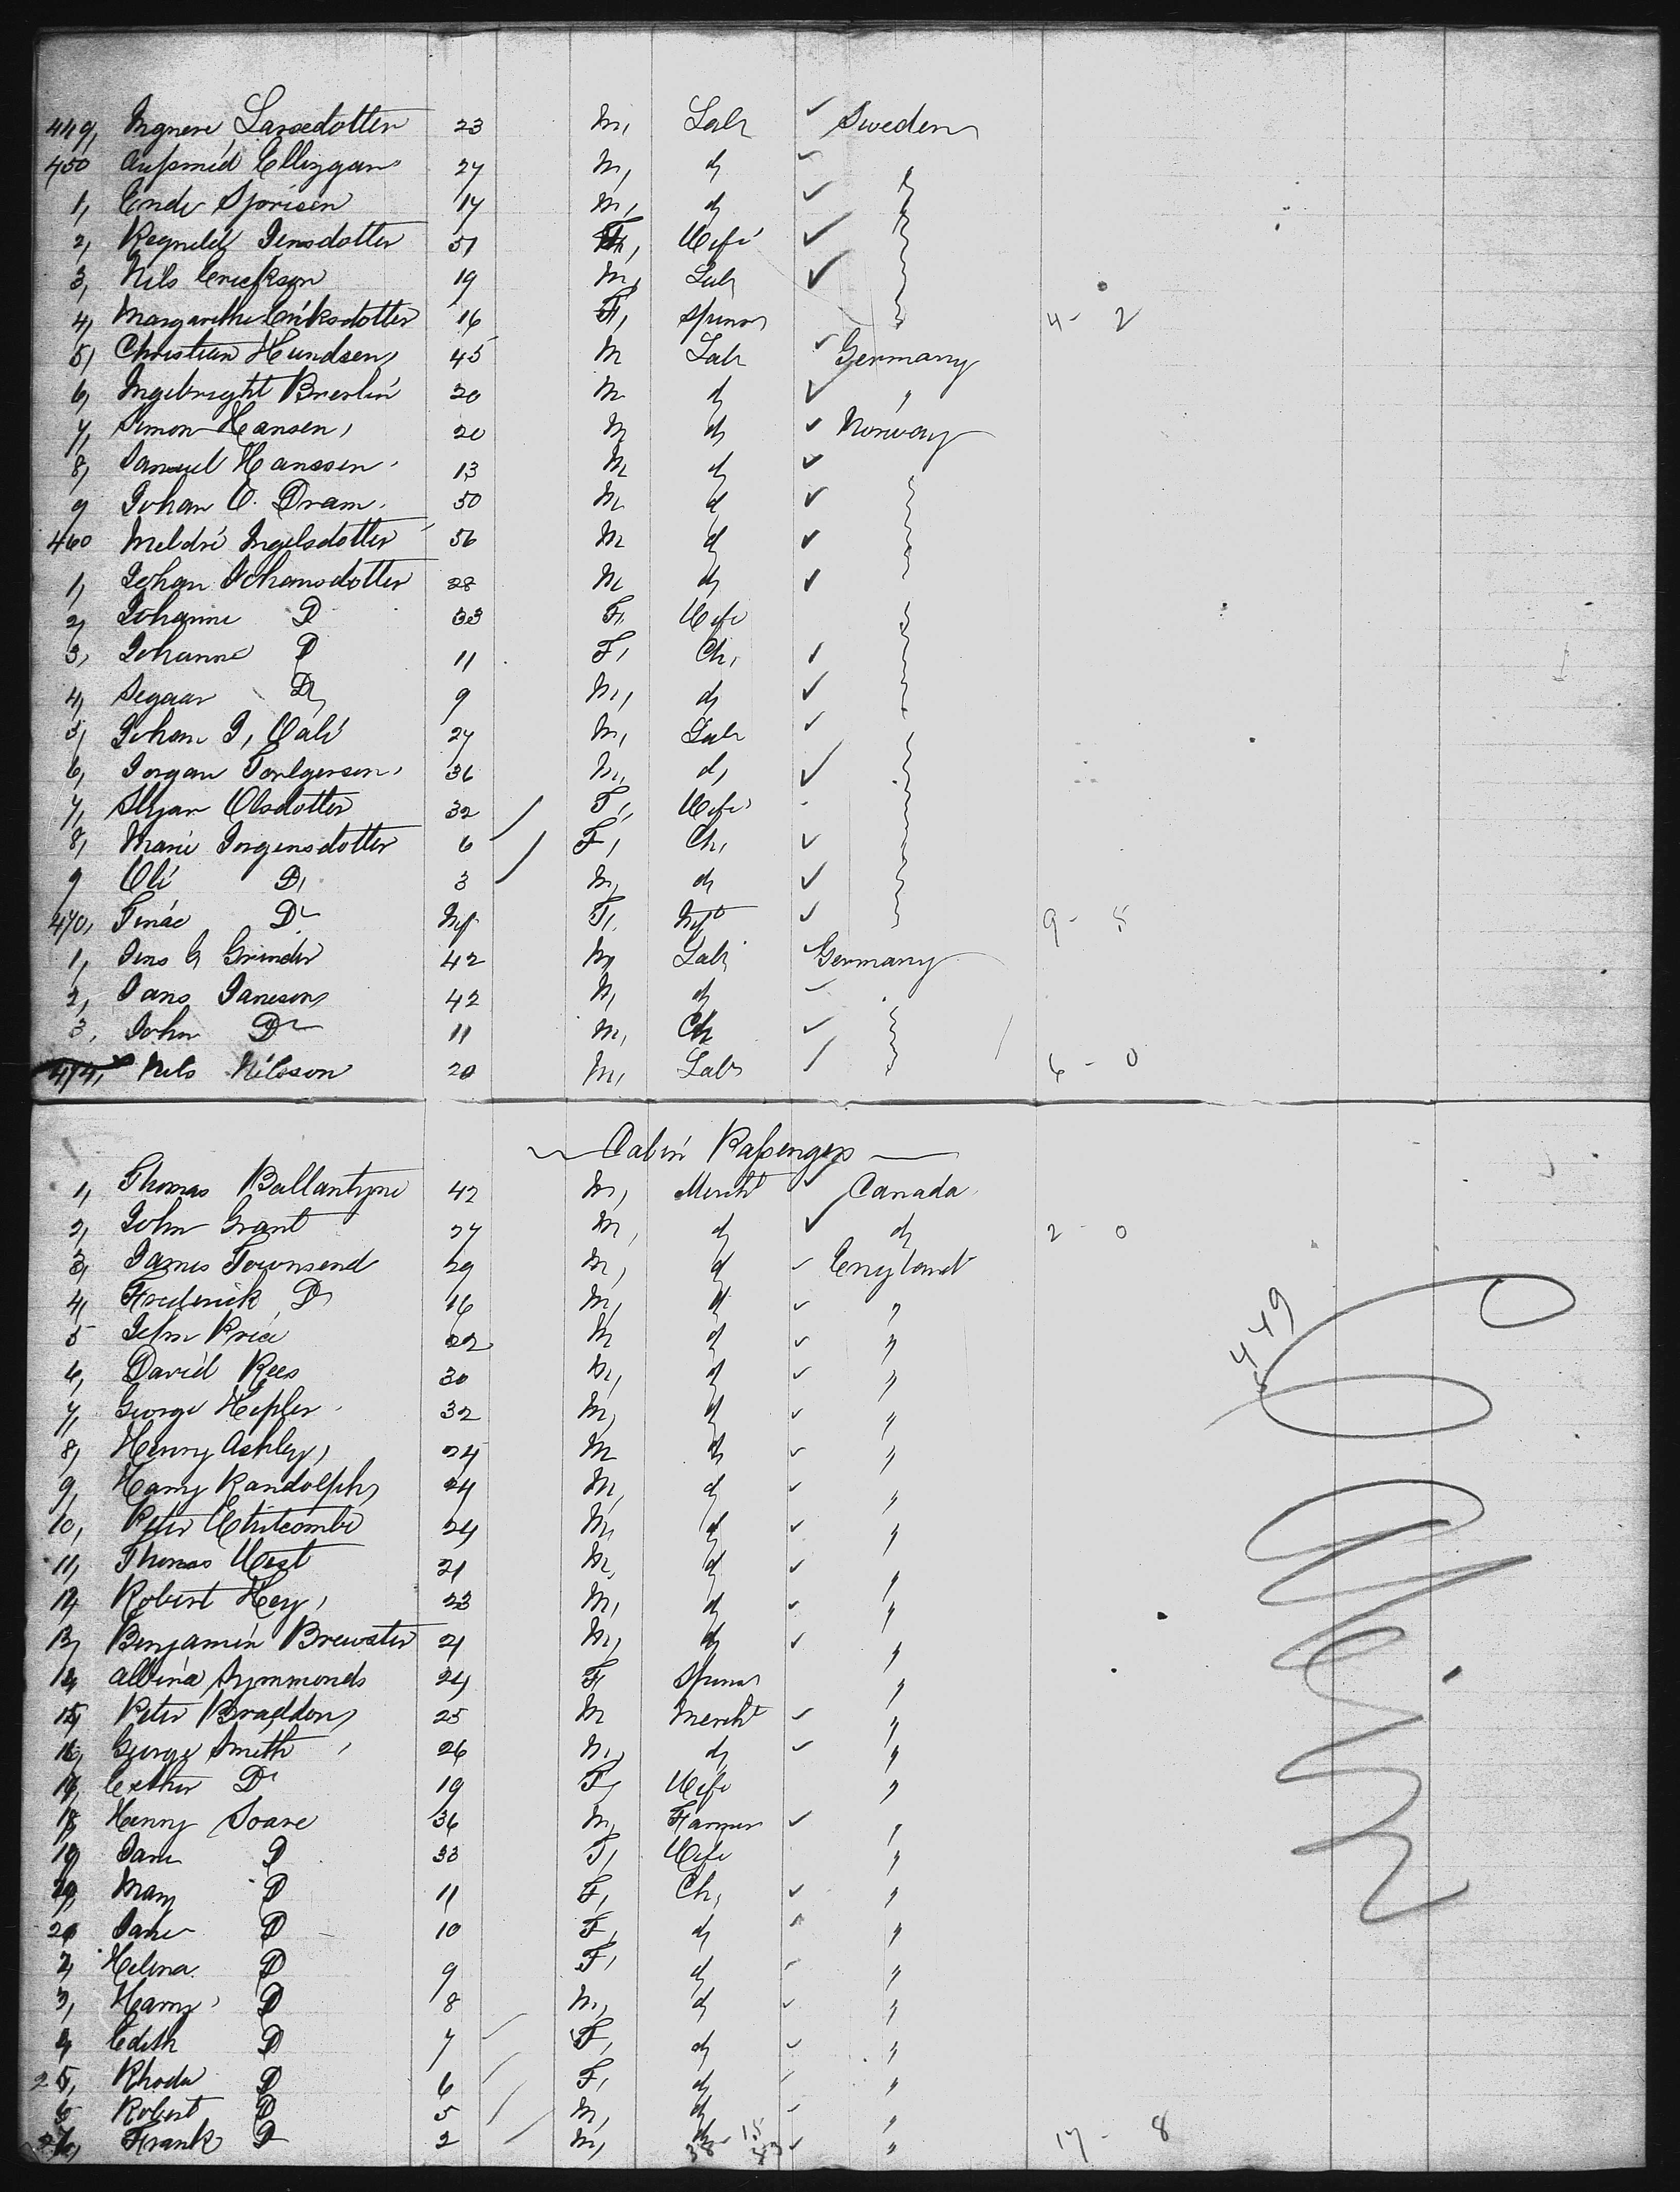 449, Ingnere Larsedotter 23 M, Lab ✓ Sweden
450 27 M, d ✓ "
1, Ende Sjorisen 17 M, d ✓
2, Regnild Jensdotter 51 F, Wife ✓
3, Nils Erickson 19 M, Lab ✓
4, Margarethe Eriksdotter 16 F, Spinr 4 - 2
5, Christian Hundsen 45 M Lab ✓ Germany
6, Ingebright Brerlin 20 M d ✓ "
7, Simon Hansen, 20 M d ✓ Norway
8, Samuel Hanssen 13 M d ✓
9 Johan O. Dram 50 M d ✓
460 Meldri Ingelsdotter 56 M d ✓
1, Johan Johansdotter 28 M d ✓
2, Johanne D 33 F, Wife
3, Johanne D 11 F, Ch, ✓
4, Segaar D 9 M, d ✓
5, Johan J, Oali 27 M, Lab ✓
6, Jorgan Torlgersen, 36 M, d, ✓
7, Olsdotter 32 F, Wife
8, Marie Jorgensdotter 6 F, Ch, ✓
9 Oli D, 3 M, d ✓
470, Tinae D Inf F, Inft ✓ 9 - 5
1, Jens G Grinder 42 M Lab ✓ Germany
2, Jans Janeson 42 M, d ✓
3, John D 11 M, Ch ✓
474, Nils Nilsson 20 M, Lab ✓ 6 - 0
Cabin Passengers
1, Thomas Ballantyne 42 M, Mercht ✓ Canada
2, John Grant 27 M, d ✓ d 2 0
3, James Townsend 29 M, d ✓ England
4, Frederick D 16 M, d ✓ "
5 John Price 22 M d ✓ "
6, David Rees 30 M, d ✓ "
7, George Hepler 32 M, d ✓ "
8, Henry Ashley, 24 M d ✓ "
9, Harry Randolph, 24 M, d ✓ "
10, Peter Whitcombe 24 M, d ✓ "
11, Thomas West 21 M, d ✓ "
12, Robert Hey, 23 M, d ✓ "
13, Benjamin Brewster 21 M, d ✓ "
14 Albina Symmonds 24 F Spinr "
15, Peter Braddon, 25 M Mercht ✓ "
16, George Smith 26 M, d ✓ "
17, Esther D 19 F, Wife "
18, Henry Soare 36 M, Farmer ✓ "
19 Jane D 33 F, Wife "
20, Mary D 11 F, Ch, ✓ "
21 Jane D 10 F, d "
2, Helena D 9 F, d "
3, Harry D 8 M, d ✓ "
4 Edith D 7 F, d ✓ "
25, Rhoda D 6 F, d "
6 Robert D 5 M, d "
27, Frank D 2 M, d ✓ " 17 - 8
38 15
449